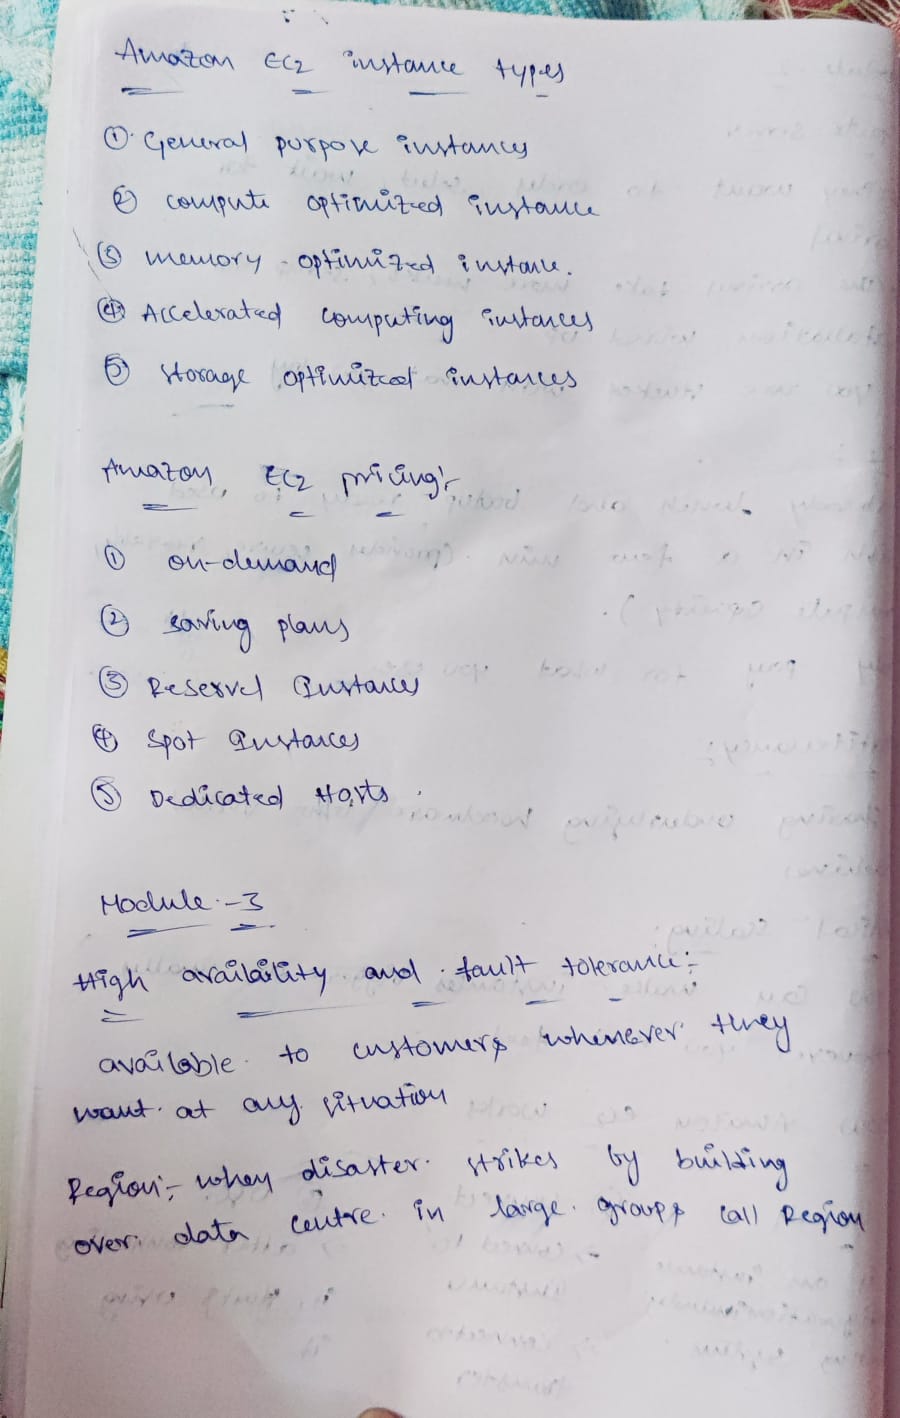 Amazon EC2 instance types
① General purpose instances
② compute optimized instance
③ memory - optimized instance.
④ Accelerated computing instances
⑤ storage optimized instances
Amazon EC2 pricing:-
① on-demand
② saving plans
③ Reserved Instances
④ Spot Instances
⑤ Dedicated Hosts.
Module - 3
High availability and fault tolerance:-
available to customers whenever they
want at any situation
Region:- when disaster strikes by building
over data centre in large groups call Region